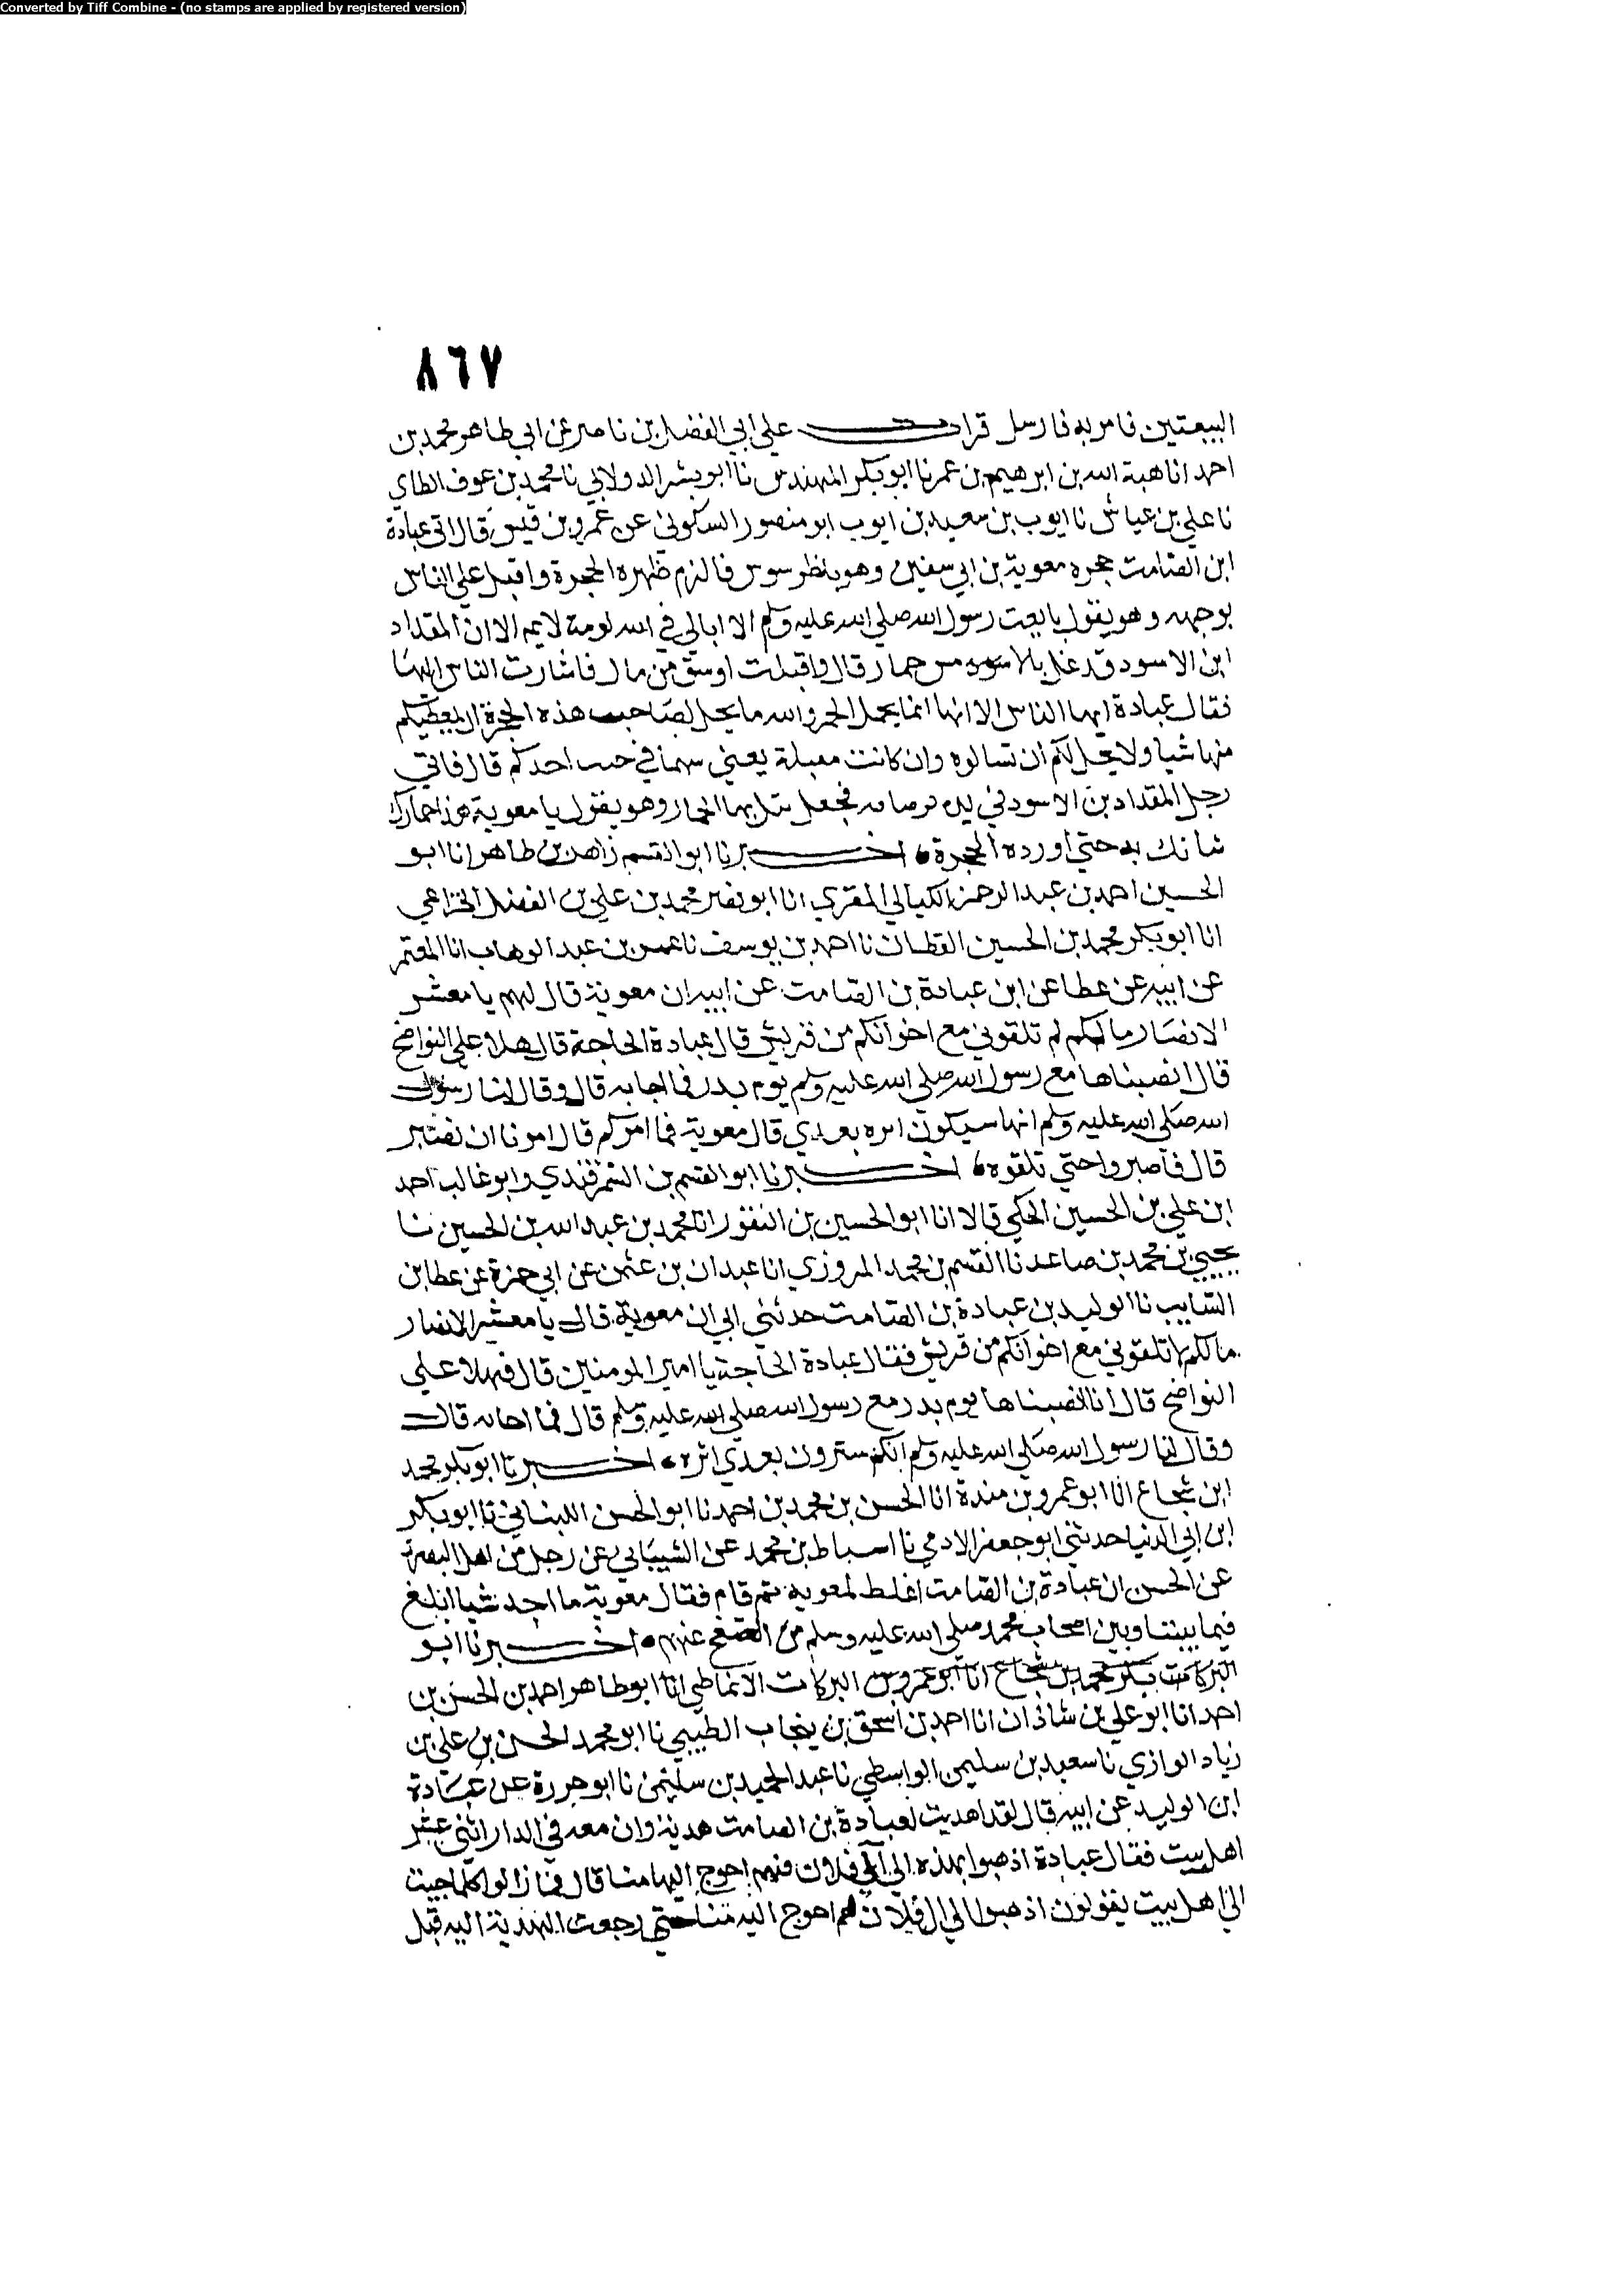 Converted by Tiff Combine - (no stamps are applied by registered version)
٨٦٧
البيعتين فامر به فارسل قرات علي ابي الفضل بن ناصر عن ابي طاهر محمد بن
احمد انا هبة الله بن ابرهيم بن عمر نا ابو بكر المهندس نا ابو بشر الدولابي نا محمد بن عوف الطاي
نا علي بن عياش نا ايوب بن سعيد بن ايوب ابو منصور السكوني عن عمرو بن قيس قال اتي عبادة
ابن الصامت حجره معوية بن ابي سفين وهو فالزم ظهره الحجرة واقبل علي الناس
بوجهه وهو يقول بايعت رسول الله صلي الله عليه وسلم الا ابالي في الله لومة لايم الا ان المقداد
ابن الاسود قد غل حمار قال واقبلت اوسق من مال فاشارت الناس اليها
فقال عبادة ايها الناس الا انها انما يحمل الخمر والله ما يحل لصاحب هذه الحجرة ان يعطيكم
منها شيا ولا يحل لكم ان تسالوه وان كانت معبلة يعني سهما في احدكم قال فاتي
رجل المقداد بن الاسود في يده فجعل بها الحمار وهو يقول يا معوية هذا حمارك
شانك به حتي اورده الحجرة اخبرنا ابو القسم زاهر بن طاهر انا ابو
الحسين احمد بن عبد الرحمن الكيالي المقري انا ابو نصر محمد بن علي بن الفضل الخزاعي
انا ابو بكر محمد بن الحسين القطان نا احمد بن يوسف نا بن عبد الوهاب انا المعتمر
عن ابيه عن عطا عن ابن عبادة بن الصامت عن ابيه ان معوية قال لهم يا معشر
الانصار ما لكم لم تلقوني مع اخوانكم من قريش قال عبادة الحاجة قال هلا علي النواضح
قال انضيناها مع رسول الله صلي الله عليه وسلم يوم بدر فما اجابه قال وقال لنا رسول
الله صلي الله عليه وسلم انها سيكون اثره بعدي قال معوية فما امركم قال امرنا ان نصبر
قال فاصبروا حتي تلقوه اخبرنا ابو القسم بن السمرقندي وابو غالب احمد
ابن علي بن الحسين الحكي قالا انا ابو الحسين بن النقور انا محمد بن عبد الله بن الحسين نا
يحيي بن محمد بن صاعد نا القسم بن محمد المروزي انا عبدان بن عثمن عن ابي حمزة عن عطا بن
السايب نا الوليد بن عبادة بن الصامت حدثني ابي ان معوية قال يا معشر الانصار
ما لكم لا تلقوني مع اخوانكم من قريش فقال عبادة الحاجة يا امير المومنين قال فهلا علي
النواضح قال انا انضيناها يوم بدر مع رسول الله صلي الله عليه وسلم قال فما اجابه قال
وقال لنا رسول الله صلي الله عليه وسلم انكم سترون بعدي اثره اخبرنا ابو بكر محمد
ابن شجاع انا ابو عمرو بن مندة انا الحسن بن محمد بن احمد نا ابو الحسن اللبناني نا ابو بكر
ابن ابي الدنيا حدثني ابو جعفر الادمي نا اسباط بن محمد عن الشيباني عن رجل من اهل البصرة
عن الحسن ان عبادة بن الصامت اغلط لمعوية ثم قام فقال معوية ما اجد شيا ابلغ
فيما بيننا وبين اصحاب محمد صلي الله عليه وسلم من الصفح عنهم اخبرنا ابو
البركات بكر محمد بن شجاع انا ابو عمرو بن البركات الانماطي انا ابو طاهر احمد بن الحسن بن
احمد انا ابو علي بن شاذان انا احمد بن اسحق بن ينجاب الطيبي نا ابو محمد الحسن بن علي بن
زياد الوازي نا سعيد بن سليمن الواسطي نا عبد الحميد بن سليمن نا ابو حرزة عن عبادة
ابن الوليد عن ابيه قال لقد اهديت لعبادة بن الصامت هدية وان معه في الدار اثني عشر
اهل بيت فقال عبادة اذهبوا بهذه الي آل فلان فهم احوج اليها منا قال فما زالوا كلما جيت
الي اهل بيت يقولون اذهبوا الي آل فلان هم احوج اليه منا حتي رجعت الهدية اليه قبل